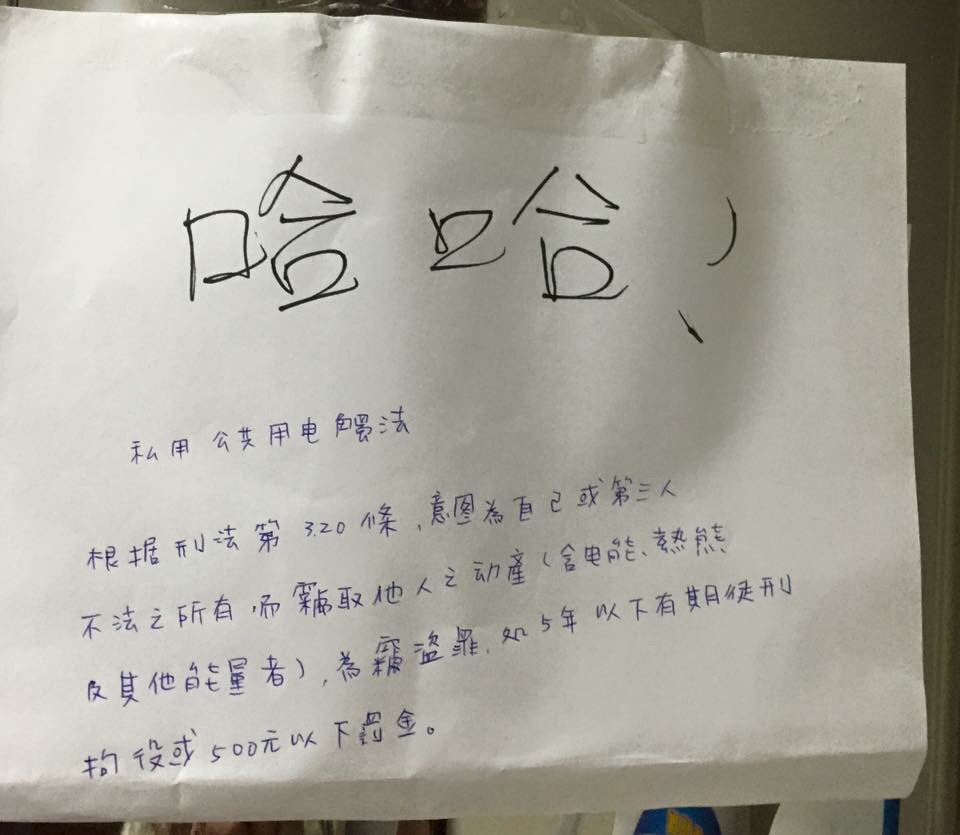 哈哈！
私用公共用电觸法
根据刑法第320條，意图為自己或第三人
不法之所有，而竊取他人之动產（含电能、熱熊
及其他能量者），為竊盜罪，处5年以下有期徒刑
拘役或500元以下罰金。